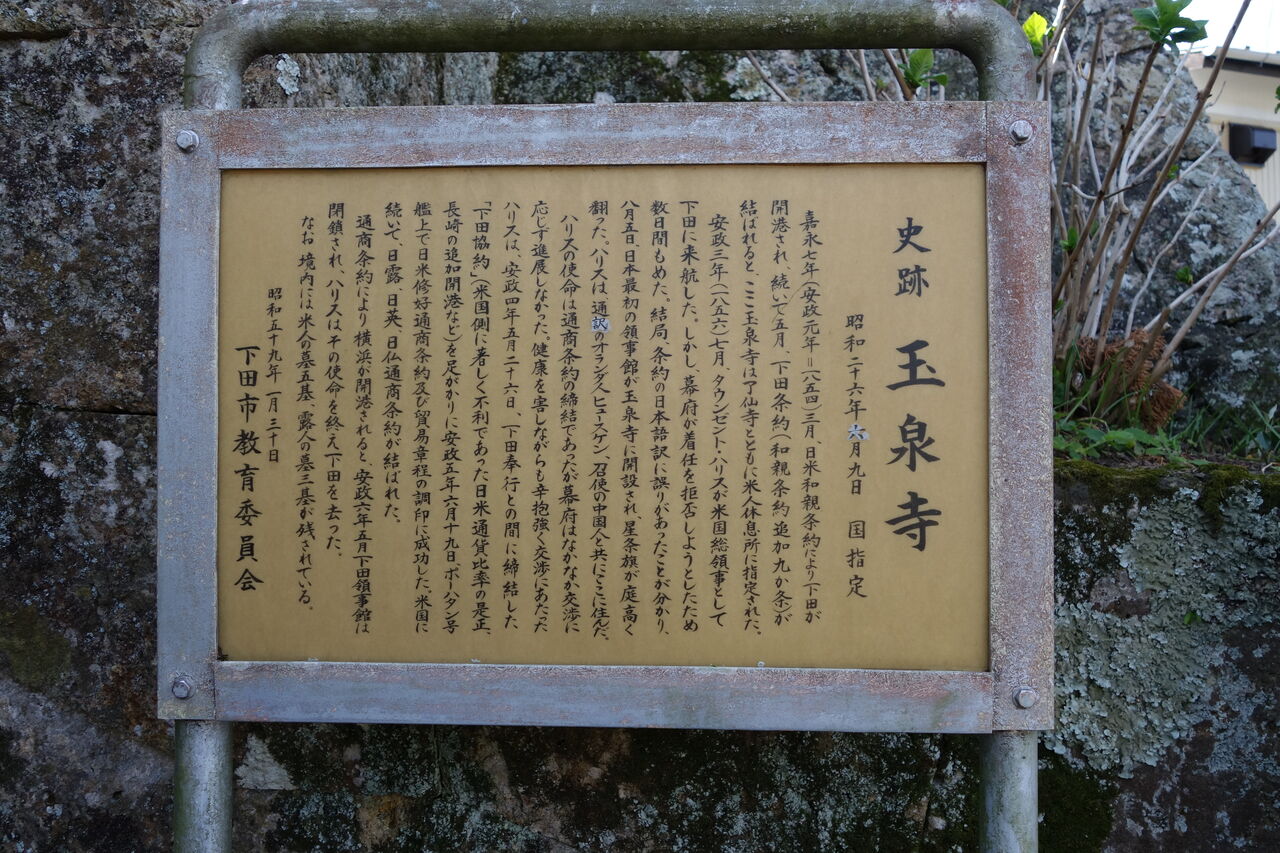 史跡 玉泉寺
昭和二十六年六月九日 国指定
嘉永七年(安政元年=一八五四)三月、日米和親条約により下田が
開港され、続いて五月、下田条約(和親条約追加九か条)が
結ばれると、ここ玉泉寺は了仙寺とともに米人休息所に指定された。
安政三年(一八五六)七月、タウンゼント・ハリスが米国総領事として
下田に来航した。しかし、幕府が着任を拒否しようとしたため
数日間もめた。結局、条約の日本語訳に誤りがあったことが分かり、
八月五日、日本最初の領事館が玉泉寺に開設され、星条旗が庭高く
翻った。ハリスは、通訳のオランダ人ヒュースケン、召使の中国人と共にここに住んだ。
ハリスの使命は通商条約の締結であったが幕府はなかなか交渉に
応じず進展しなかった。健康を害しながらも辛抱強く交渉にあたった
ハリスは、安政四年五月二十六日、下田奉行との間に締結した
「下田協約」(米国側に著しく不利であった日米通貨比率の是正、
長崎の追加開港など)を足がかりに安政五年六月十九日ポーハタン号
艦上で日米修好通商条約及び貿易章程の調印に成功した。米国に
続いて、日露、日英、日仏通商条約が結ばれた。
通商条約により横浜が開港されると、安政六年五月下田領事館は
閉鎖され、ハリスはその使命を終え下田を去った。
なお、境内には米人の墓五基、露人の墓三基が残されている。
昭和五十九年一月三十日
下田市教育委員会